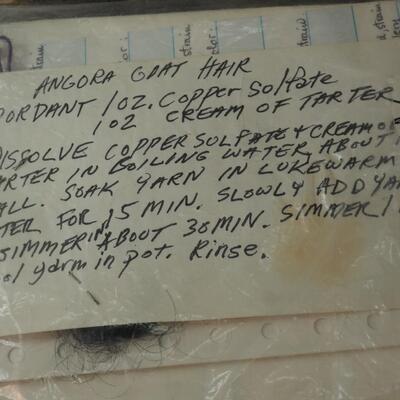 train
or :
strain
color :
train
d, strain
ANGORA GOAT HAIR
ORDANT 1 OZ. COPPER SOLFATE
1 OZ CREAM OF TARTER
ISSOLVE COPPER SULPATE & CREAM OF
ARTER IN BOILING WATER ABOUT 1
ALL. SOAK YARN IN LUKEWARM
TER FOR 15 MIN. SLOWLY ADD YAR
SIMMERING ABOUT 30 MIN. SIMMER 1
ol yarm in pot. Rinse.